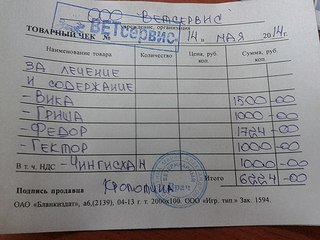 ООО "ВЕТСЕРВИС"
учреждение, организация
ВЕТсервис
ТОВАРНЫЙ ЧЕК № 14 " МАЯ 2014г.
Наименование товара Количество Цена, руб. коп. Сумма, руб. коп.
ЗА ЛЕЧЕНИЕ
И СОДЕРЖАНИЕ
- ВИКА 1500 -00
- ГРИША 1000 -00
- ФЕДОР 1724 -00
- ГЕКТОР 1000 -00
В т. ч. НДС - ЧИНГИСХАН 1000 -00
Итого 6224 -00
Подпись продавца
ОАО «Бланкиздат», а6,(2139), 04-13 г. т. 2000х100. ООО «Игр. тип.» Зак. 1594.